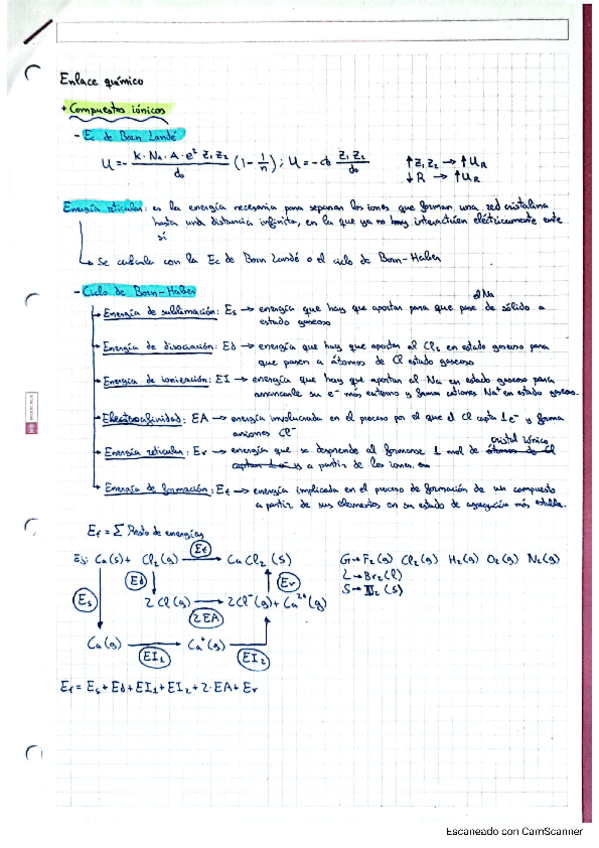 Enlace químico
+ Compuestos iónicos
- Ec de Born Landé
U = - K · Na · A · e² Z₁ Z₂ / d₀ (1 - 1/n) ; U = - cte Z₁ Z₂ / d₀
↑ Z₁ Z₂ → ↑ U_R
↓ R → ↑ U_R
Energía reticular: es la energía necesaria para separar los iones que forman una red cristalina
hasta una distancia infinita, en la que ya no hay interactúen eléctricamente entre
sí
↳ Se calcula con la Ec de Born Landé o el ciclo de Born-Haber
- Ciclo de Born-Haber
→ Energía de sublimación: Es → energía que hay que aportar para que pase el Na de sólido a
estado gaseoso
→ Energía de disociación: Ed → energía que hay que aportar al Cl₂ en estado gaseoso para
que pasen a átomos de Cl estado gaseoso
→ Energía de ionización: EI → energía que hay que aportar al Na en estado gaseoso para
arrancarle su e⁻ más externo y formar cationes Na⁺ en estado gaseoso.
→ Electroafinidad: EA → energía involucrada en el proceso por el que el Cl capta 1e⁻ y forma
aniones Cl⁻
→ Energía reticular: Er → energía que se desprende al formarse 1 mol de cristal iónico
a partir de los iones.
→ Energía de formación: Ef → energía implicada en el proceso de formación de un compuesto
a partir de sus elementos en su estado de agregación más estable.
Ef = Σ Resto de energías
Ej: Ca(s) + Cl₂(g) → Ef CaCl₂(s)
G → F₂(g) Cl₂(g) H₂(g) O₂(g) N₂(g)
L → Br₂(l)
S → I₂(s)
Es
Ed
Er
2Cl(g) → 2Cl⁻(g) + Ca²⁺(g)
2EA
Ca(g) → Ca⁺(g)
EI₁
EI₂
Ef = Es + Ed + EI₁ + EI₂ + 2·EA + Er
Escaneado con CamScanner